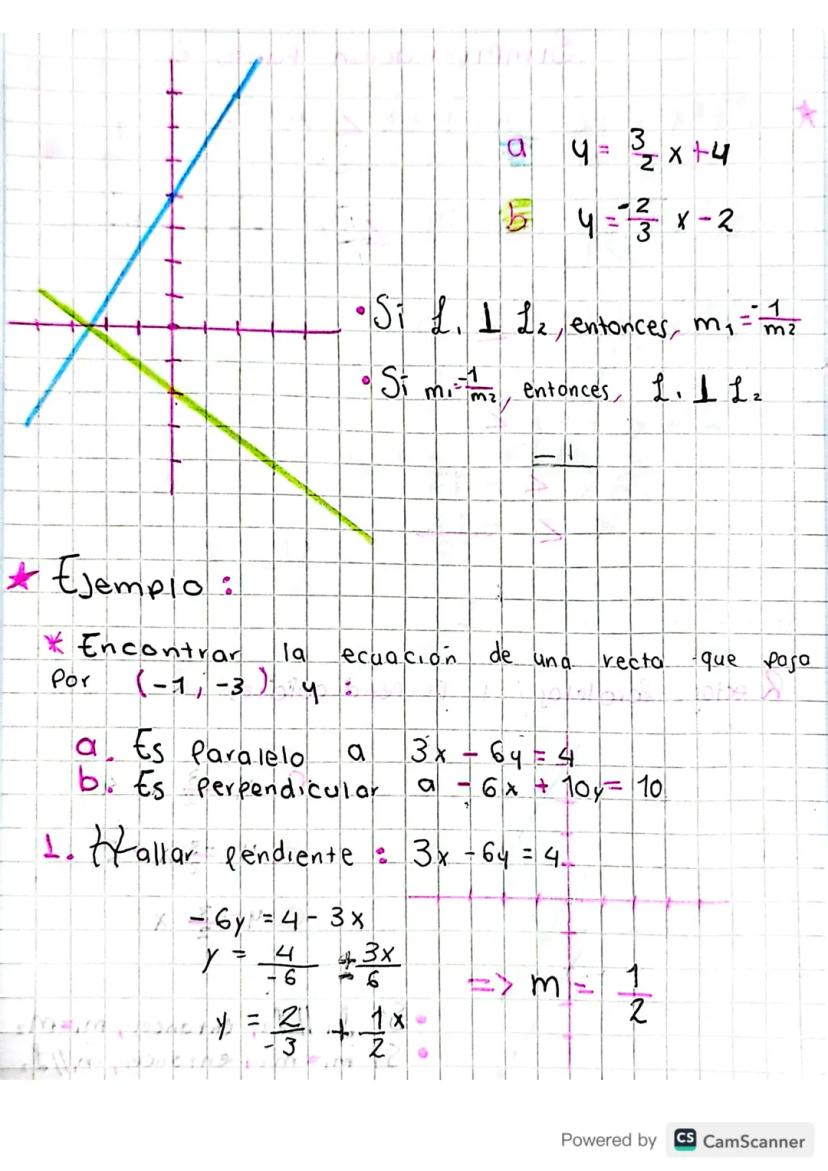 a y = 3/2 x + 4
b y = -2/3 x - 2
• Si L₁ ⊥ L₂, entonces, m₁ = -1/m2
• Si m₁ = -1/m₂, entonces, L₁ ⊥ L₂
-1
★ Ejemplo:
* Encontrar la ecuación de una recta que pasa
Por (-1, -3) y:
a. Es Paralelo a 3x - 6y = 4
b. Es perpendicular a -6x + 10y = 10
1. Hallar pendiente: 3x - 6y = 4
-6y = 4 - 3x
y = 4/-6 + 3x/6
y = 2/-3 + 1/2 x
=> m = 1/2
Powered by CS CamScanner